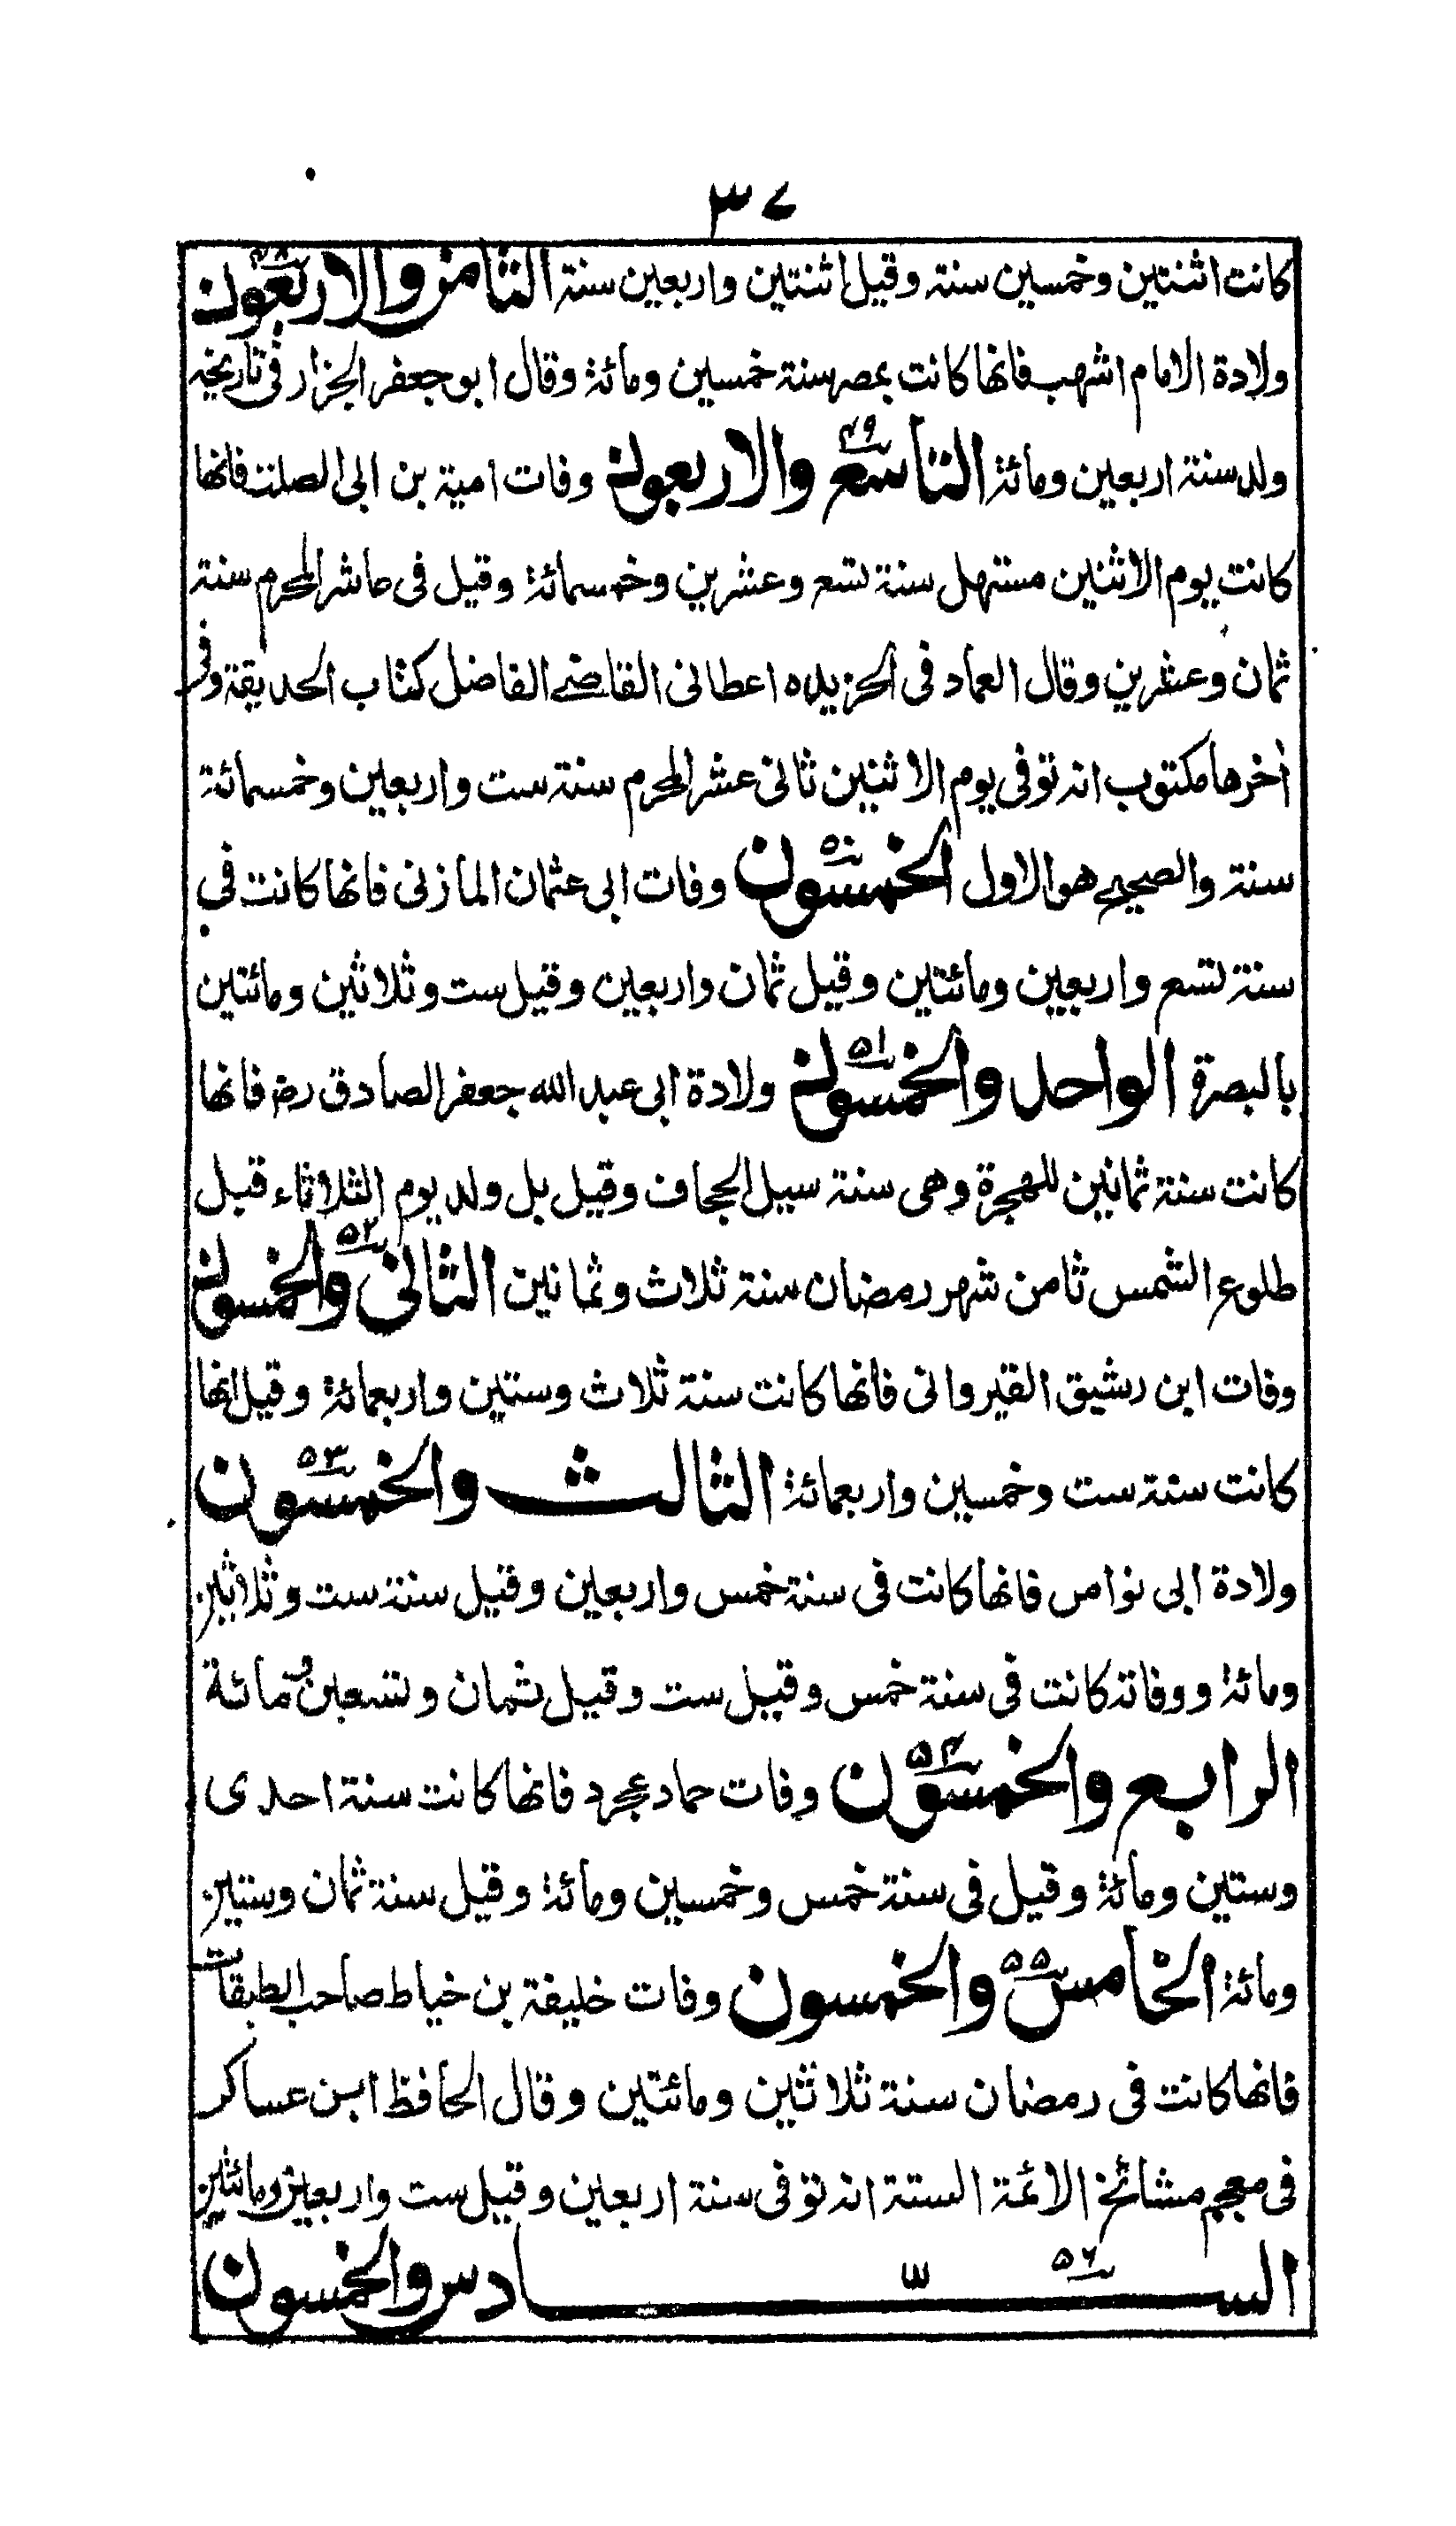 ٣٧
كانت اثنتين وخمسين سنة وقيل اثنتين واربعين سنة الثامن والاربعون ٤٨
ولادة الامام اشهب فانها كانت بمصر سنة خمسين ومائة وقال ابو جعفر الجزار فى تاريخه
ولد سنة اربعين ومائة التاسع والاربعون ٤٩ وفات امية بن ابى الصلت فانها
كانت يوم الاثنين مستهل سنة تسع وعشرين وخمسمائة وقيل فى عاشر المحرم سنة
ثمان وعشرين وقال العماد فى الخريده اعطانى القاضى الفاضل كتاب الحديقة وفى
اخرها مكتوب انه توفى يوم الاثنين ثانى عشر المحرم سنة ست واربعين وخمسمائة
سنة والصحيح هو الاول الخمسون ٥٠ وفات ابى عثمان المازنى فانها كانت فى
سنة تسع واربعين ومائتين وقيل ثمان واربعين وقيل ست وثلاثين ومائتين
بالبصرة الواحد والخمسون ٥١ ولادة ابى عبد الله جعفر الصادق رض فانها
كانت سنة ثمانين للهجرة وهى سنة سيل الجحاف وقيل بل ولد يوم الثلاثاء قبل
طلوع الشمس ثامن شهر رمضان سنة ثلاث وثمانين الثانى والخمسون ٥٢
وفات ابن رشيق القيروانى فانها كانت سنة ثلاث وستين واربعمائة وقيل انها
كانت سنة ست وخمسين واربعمائة الثالث والخمسون ٥٣
ولادة ابى نواس فانها كانت فى سنة خمس واربعين وقيل سنة ست وثلاثين
ومائة ووفاته كانت فى سنة خمس وقيل ست وقيل ثمان وتسعين ومائة
الرابع والخمسون ٥٤ وفات حماد عجرد فانها كانت سنة احدى
وستين ومائة وقيل فى سنة خمس وخمسين ومائة وقيل سنة ثمان وستين
ومائة الخامس والخمسون ٥٥ وفات خليفة بن خياط صاحب الطبقات
فانها كانت فى رمضان سنة ثلاثين ومائتين وقال الحافظ ابن عساكر
فى معجم مشائخ الائمة الستة انه توفى سنة اربعين وقيل ست واربعين ومائتين
السادس والخمسون ٥٦